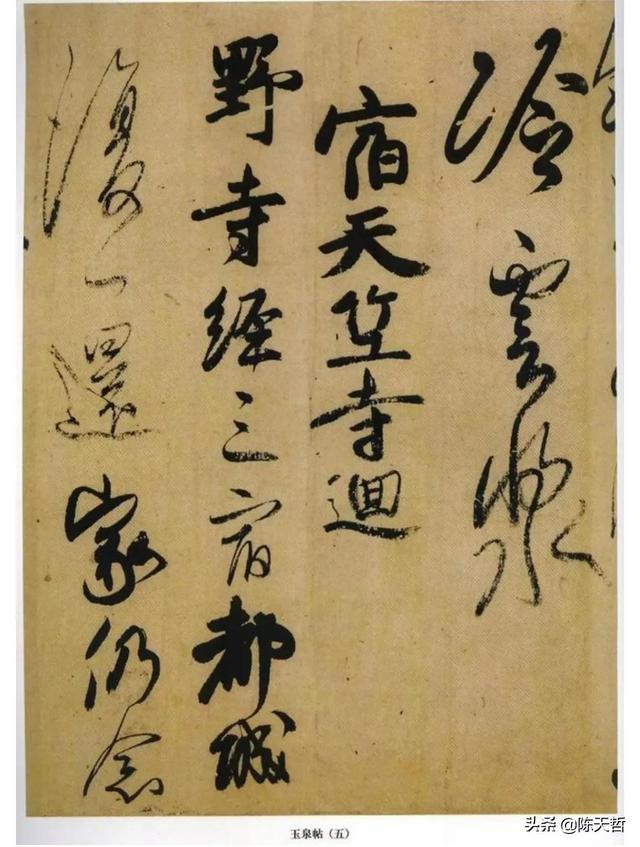 冷雲漿
宿天竺寺迴
野寺經三宿都城
復一還家仍念
玉泉帖（五）
头条 @陈天哲